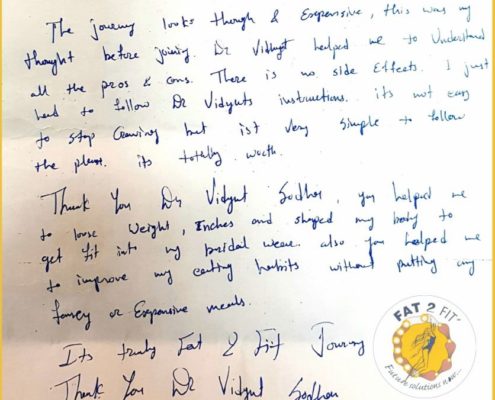 The journey looks though & Expensive, this was my
thought before joining. Dr Vidyut helped me to Understand
all the pros & cons. There is no side Effects. I just
had to follow Dr Vidyuts instructions. its not easy
to stop Craving but ist very simple to follow
the plan. its totally worth.
Thank You Dr Vidyut Sodhar, you helped me
to loose Weight, Inches and shaped my body to
get fit into my bridal wear. also you helped me
to improve my eating habits without putting any
fancy or Expensive meals.
Its truly Fat 2 Fit Journey
Thank You Dr Vidyut Sodhar
FAT 2 FIT
Future solutions now...